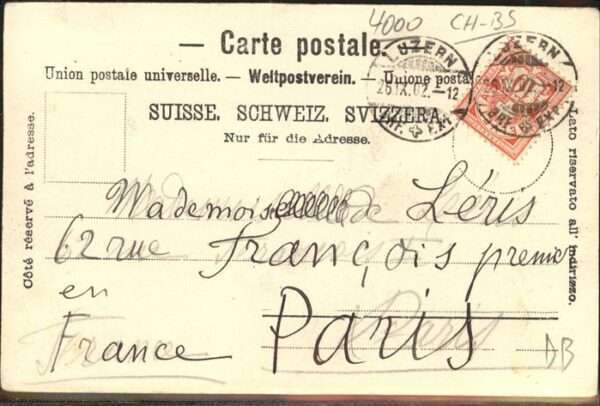 4000 CH-BS
— Carte postale.
Union postale universelle. — Weltpostverein. — Unione posta
SUISSE. SCHWEIZ. SVIZZERA.
Nur für die Adresse.
LUZERN
26.IX.02.-12
BRF. EXP.
UZERN
-12
BRF. EXP.
Côté réservé à l'adresse.
Lato riservato all' indirizzo.
Mademoiselle de Léris
62 rue François premier
en Paris
France
Paris
DB